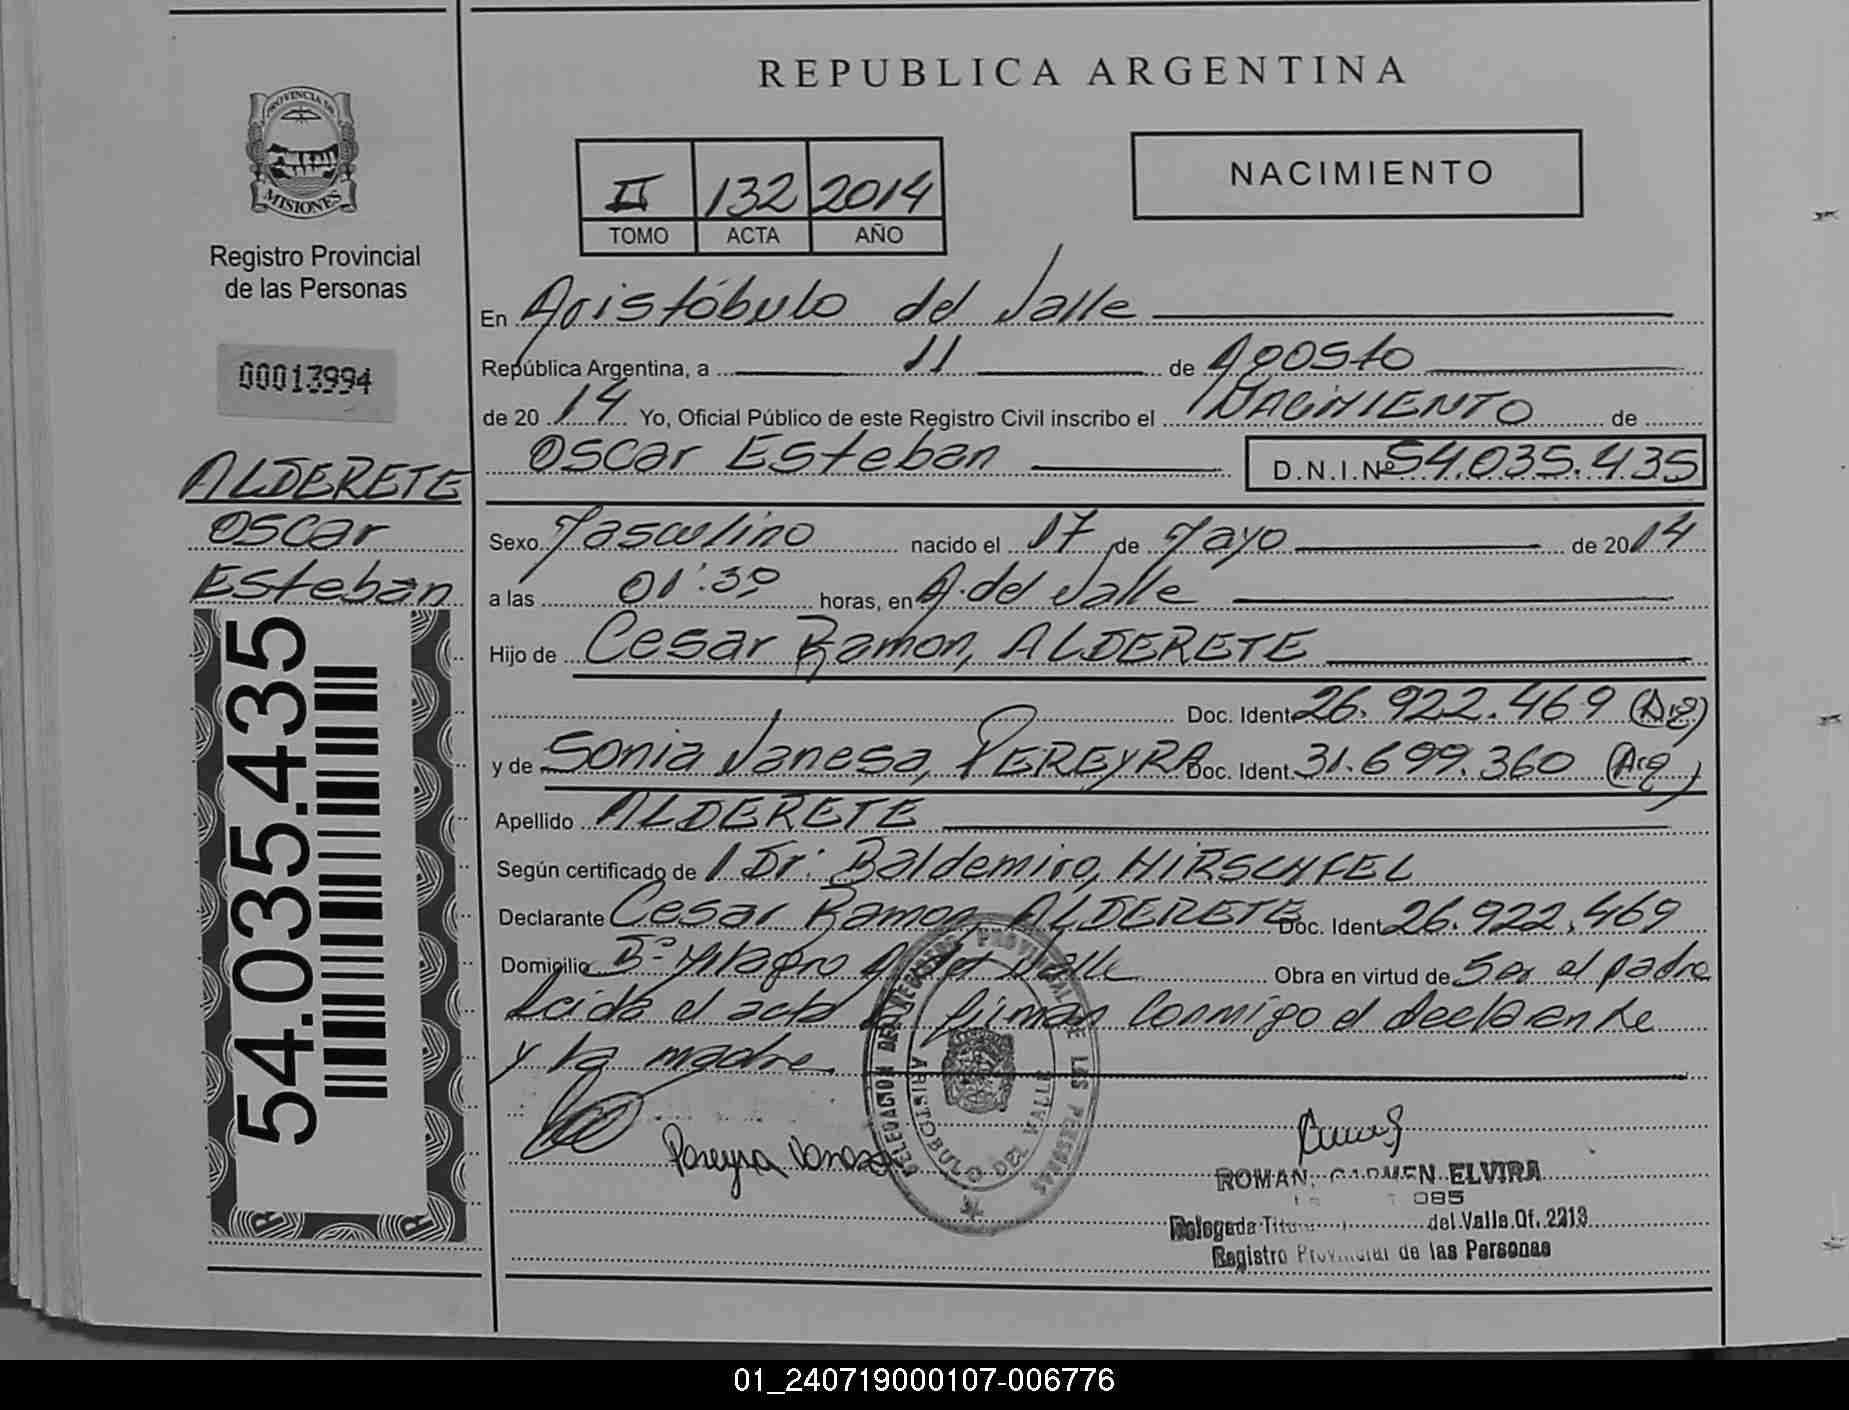 REPUBLICA ARGENTINA
PROVINCIA DE
MISIONES
Registro Provincial
de las Personas
00013994
ALDERETE
Oscar
Esteban
54.035.435
II 132 2014
TOMO ACTA AÑO
NACIMIENTO
En Aristóbulo del Valle
República Argentina, a 11 de Agosto
de 20 14 Yo, Oficial Público de este Registro Civil inscribo el NACIMIENTO de
Oscar Esteban D.N.I.Nº 54.035.435
Sexo Masculino nacido el 17 de Mayo de 2014
a las 01:30 horas, en A. del Valle
Hijo de Cesar Ramon, ALDERETE
Doc. Ident. 26.922.469 (Arg)
y de Sonia Vanesa, PEREYRA Doc. Ident. 31.699.360 (Arg)
Apellido ALDERETE
Según certificado de Dr: Baldemiro, HIRSCHFEL
Declarante Cesar Ramon, ALDERETE Doc. Ident. 26.922.469
Domicilio Bº Milagro A. del Valle Obra en virtud de Ser el padre
Leida el acta firman conmigo el declarante
y la madre
Pereyra Vanesa
DELEGACION DEL REGISTRO PROVINCIAL DE LAS PERSONAS
ARISTOBULO DEL VALLE
ROMAN, CARMEN ELVIRA
085
Delegada del Valle Of. 2213
Registro Provincial de las Personas
01_240719000107-006776